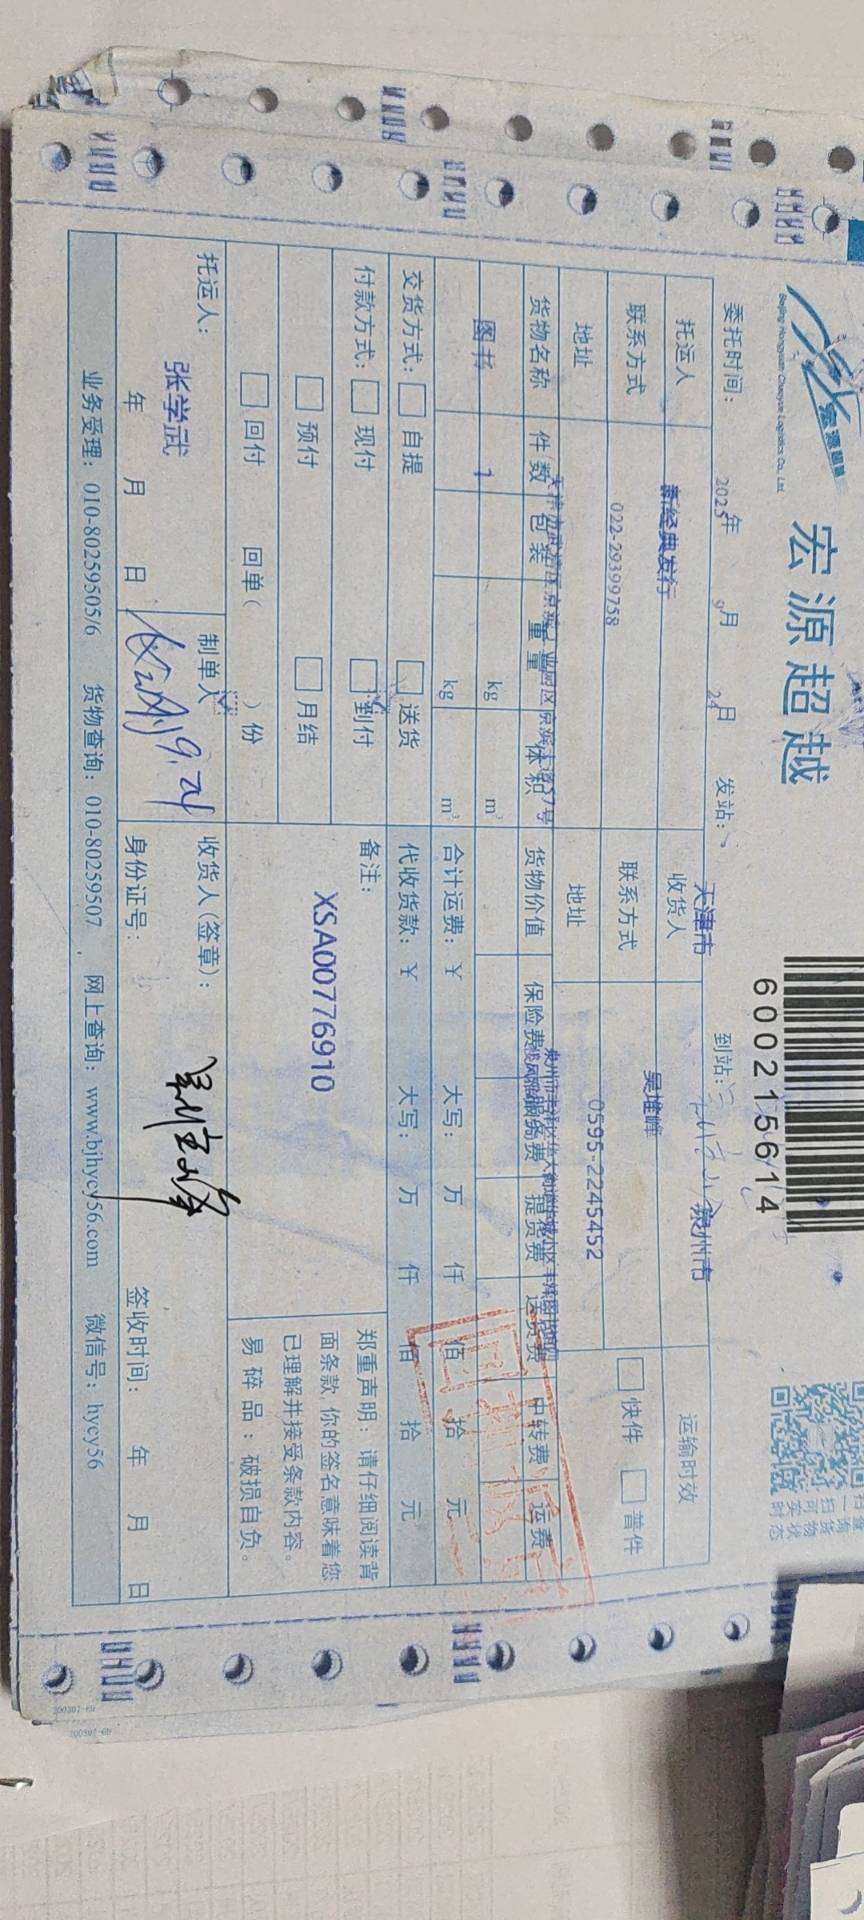 宏源超越
Beijing Hongyuan Chaoyue Logistics Co., Ltd.
600215614
委托时间: 2025年 9月 24日 发站: 天津市 到站: 泉州市
托运人 新经典发行 收货人 吴堆峰 运输时效
联系方式 022-29399758 联系方式 0595-2245452 快件 普件
地址 地址
货物名称 件数 包装 重量 体积 货物价值 保险费 服务费 提货费 送货费 中转费 运费
图书 1 kg m³
kg m³ 合计运费:¥ 大写: 万 仟 佰 拾 元
交货方式: 自提 送货 代收货款:¥ 大写: 万 仟 佰 拾 元
付款方式: 现付 到付 备注:
预付 月结 XSA00776910
回付 回单( )份
郑重声明:请仔细阅读背
面条款 你的签名意味着您
已理解并接受条款内容。
易碎品:破损自负。
托运人: 制单人 收货人(签章):
张学武 9.24
年 月 日 身份证号: 签收时间: 年 月 日
业务受理:010-80259505/6 货物查询:010-80259507 网上查询:www.bjhycy56.com 微信号:hycy56